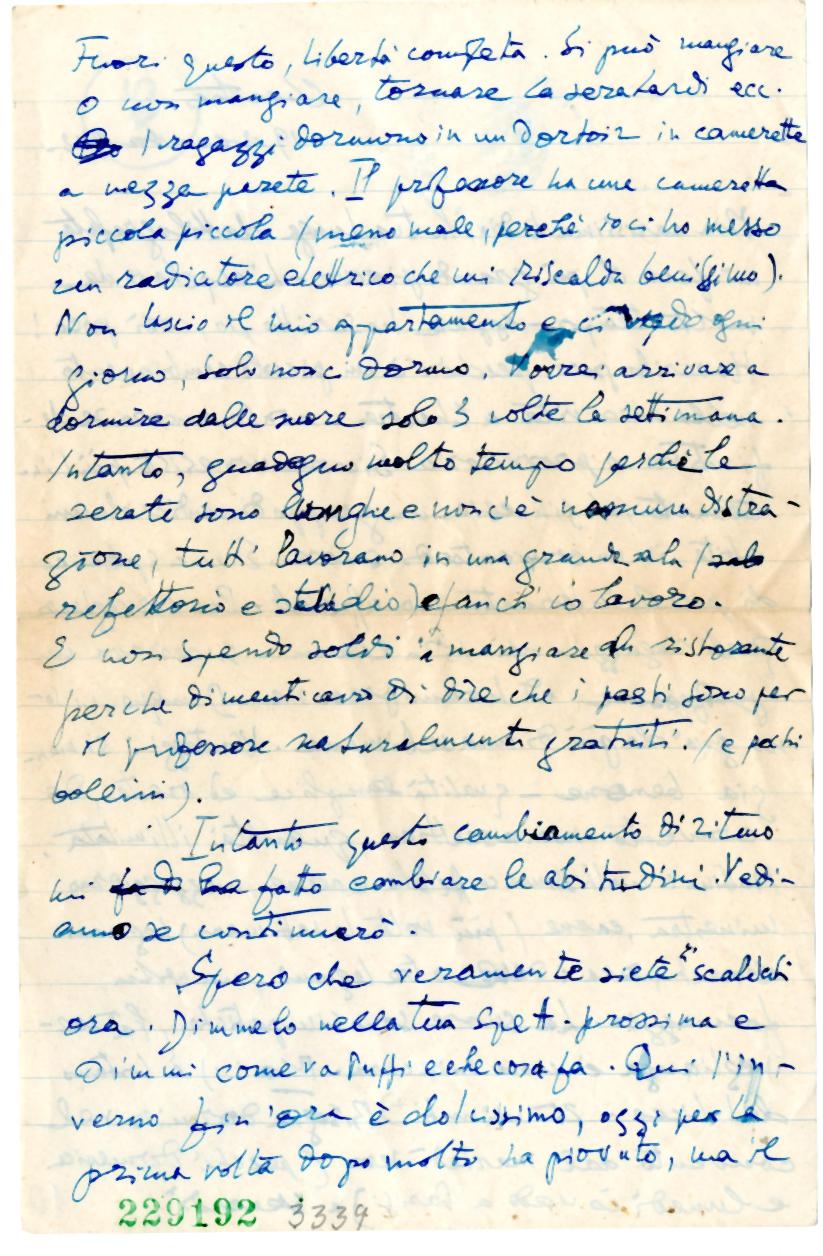 Fuori questo, libertà completa. Si può mangiare
o non mangiare, tornare la sera tardi ecc.
I ragazzi dormono in un Dortoir in camerette
a mezza parete. Il professore ha una cameretta
piccola piccola (meno male, perchè io ci ho messo
un radiatore elettrico che mi riscalda benissimo).
Non lascio il mio appartamento e ci vado ogni
giorno, solo non ci dormo. Vorrei arrivare a
dormire dalle suore solo 3 volte la settimana.
Intanto, guadagno molto tempo perchè le
serate sono lunghe e non c'è nessuna distra-
zione, tutti lavorano in una grande sala (sala
refettorio e studio) e anch'io lavoro.
E non spendo soldi a mangiare al ristorante
perche dimenticavo di dire che i pasti sono per
il professore naturalmente gratuiti. (e pochi
bollini).
Intanto questo cambiamento di ritmo
mi ha fatto cambiare le abitudini. Vedi-
amo se continuerò.
Spero che veramente siete scaldati
ora. Dimmelo nella tua prossima e
Dimmi come va Puffi e che cosa fa. Qui l'in-
verno fin'ora è dolcissimo, oggi per la
prima volta dopo molto ha piovuto, ma il
229192 3334